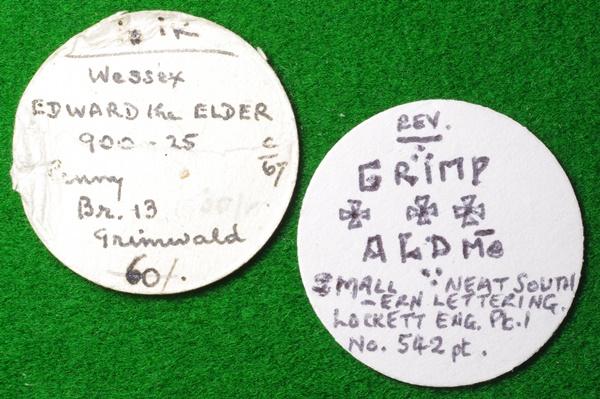 Wessex
EDWARD the ELDER
900-25
C/67
Penny
Br. 13
Grimwald
60/.
REV.
GRIMP
ALDMO
SMALL : NEAT SOUTH
-ERN LETTERING.
LOCKETT ENG. Pt.1
No. 542 pt.